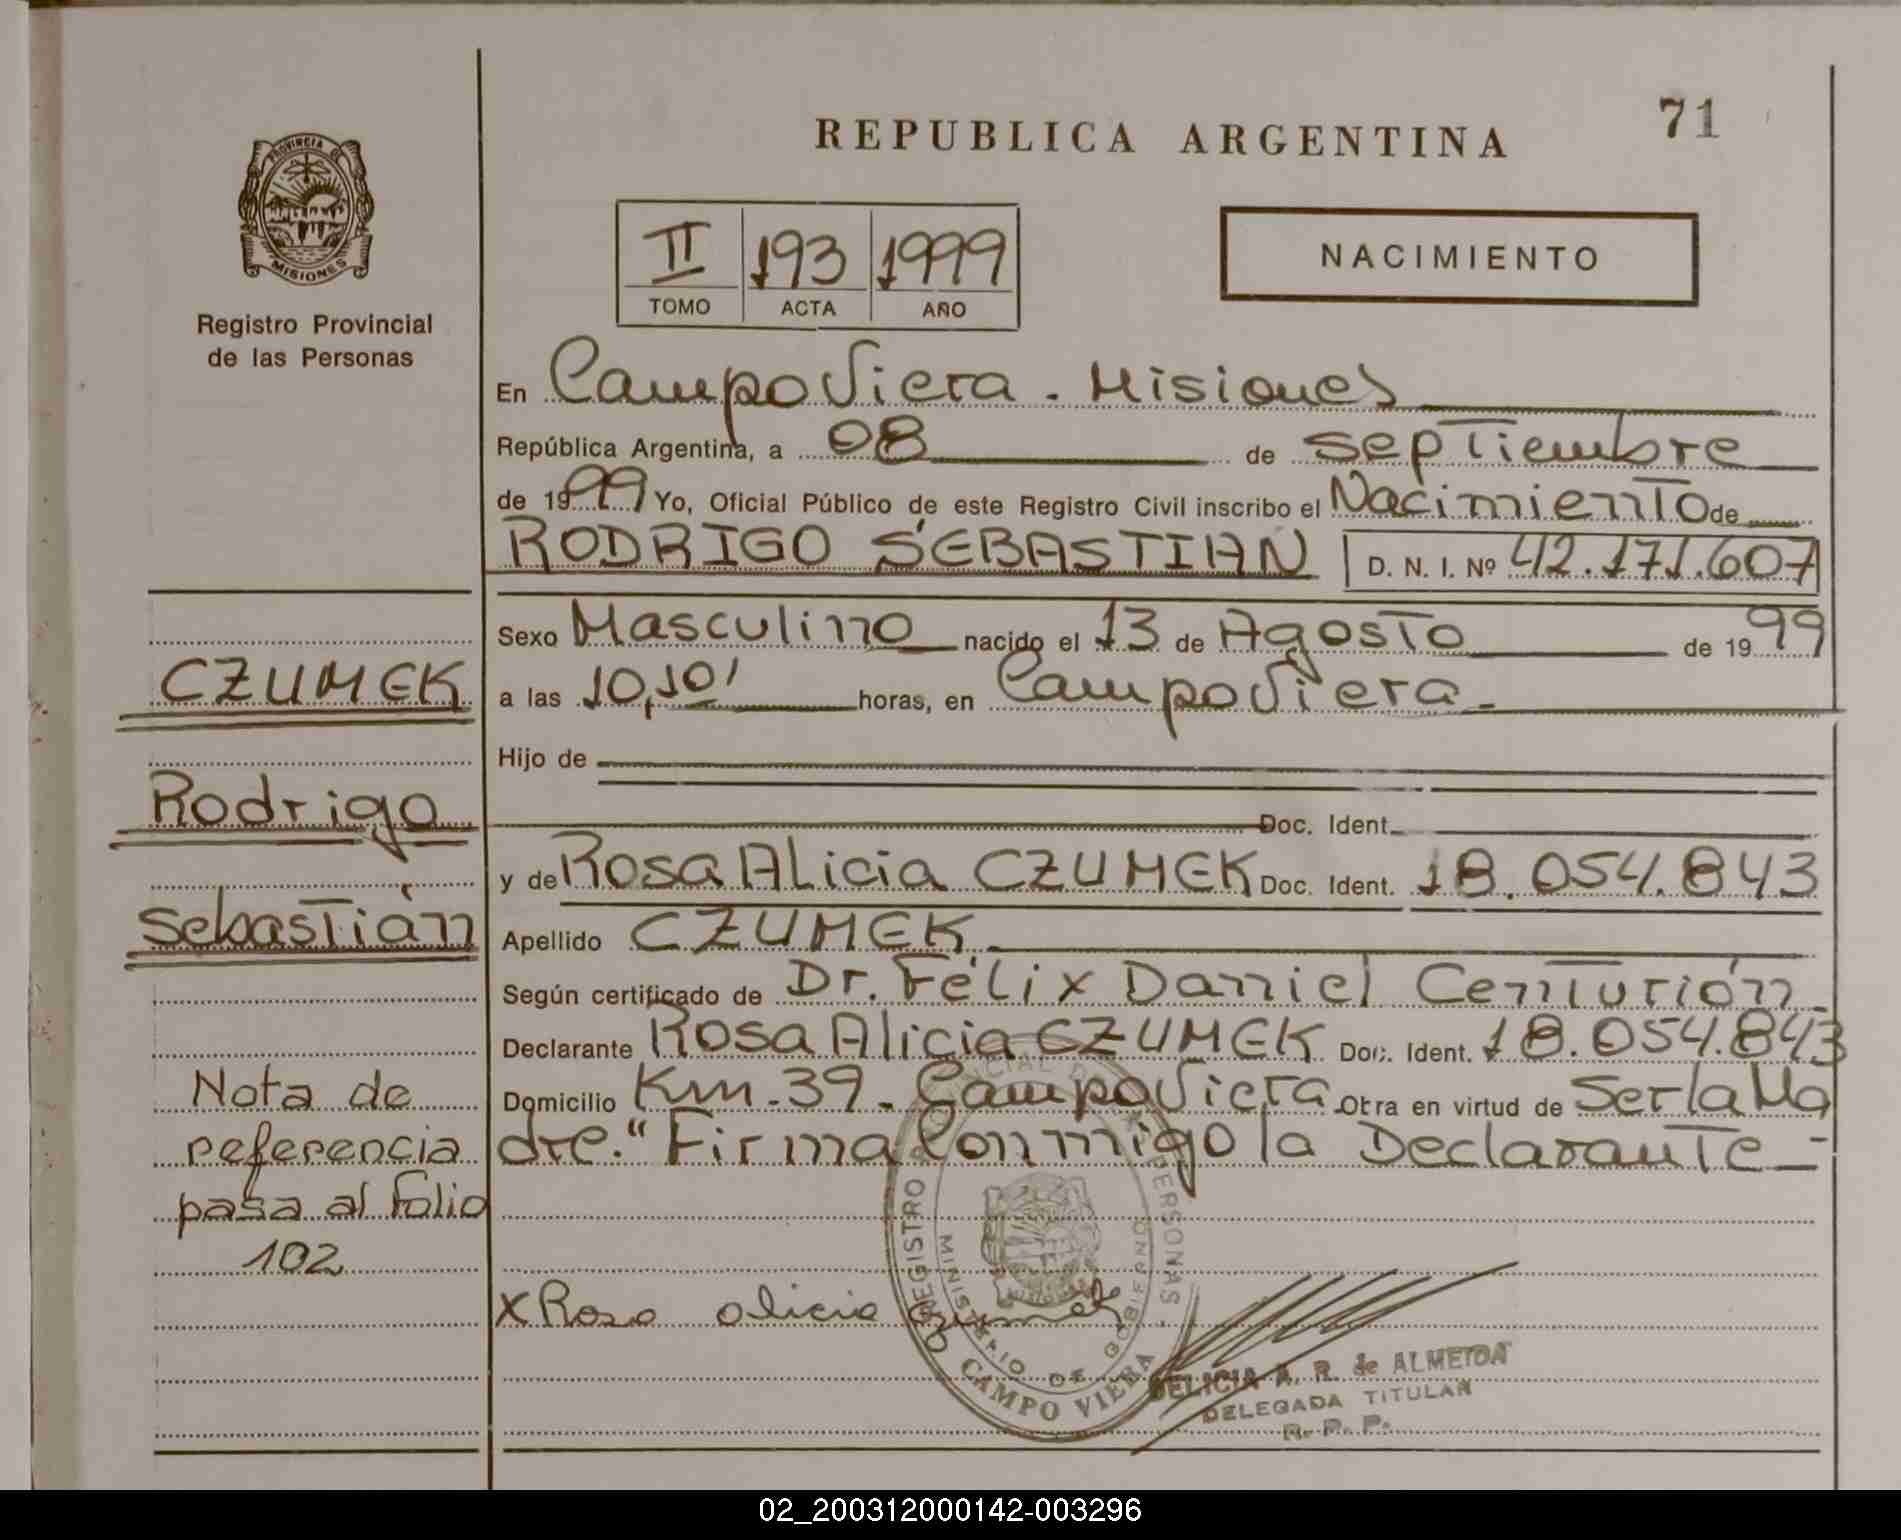 71
REPUBLICA ARGENTINA
PROVINCIA DE
MISIONES
Registro Provincial
de las Personas
II 193 1999
TOMO ACTA AÑO
NACIMIENTO
En Campo Viera - Misiones
República Argentina, a 08 de septiembre
de 1999 Yo, Oficial Público de este Registro Civil inscribo el Nacimiento de
RODRIGO SEBASTIAN D. N. I. Nº 42.171.607
Sexo Masculino nacido el 13 de Agosto de 1999
a las 10,10' horas, en Campo Viera -
Hijo de
Doc. Ident.
y de Rosa Alicia CZUMEK Doc. Ident. 18.054.843
Apellido CZUMEK -
Según certificado de Dr. Félix Daniel Centurión
Declarante Rosa Alicia CZUMEK Doc. Ident. 18.054.843
Domicilio Km. 39 - Campo Viera - Obra en virtud de Ser la Ma
dre." Firma Conmigo la Declarante -
CZUMEK
Rodrigo
Sebastián
Nota de
referencia
pasa al Folio
102
X Rosa alicia czumek
REGISTRO PROVINCIAL DE PERSONAS
MINISTERIO DE GOBIERNO
CAMPO VIERA
DELICIA A. R. de ALMEIDA
DELEGADA TITULAR
R. P. P.
02_200312000142-003296